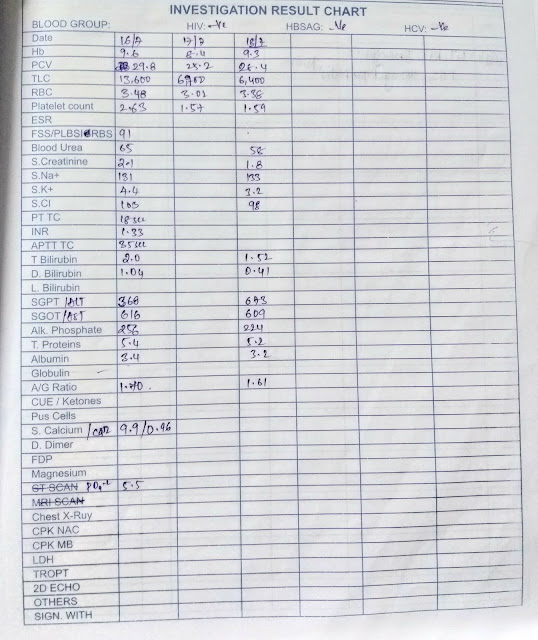 INVESTIGATION RESULT CHART
BLOOD GROUP: HIV: -Ve HBSAG: -Ve HCV: -Ve
Date 16/7 17/7 18/7
Hb 9.6 8.4 9.3
PCV 29.8 25.2 28.4
TLC 13,600 6900 6,400
RBC 3.48 3.01 3.38
Platelet count 2.63 1.57 1.59
ESR
FSS/PLBS/RBS 91
Blood Urea 65 58
S.Creatinine 2.1 1.8
S.Na+ 131 133
S.K+ 4.4 3.2
S.Cl 103 98
PT TC 18 sec
INR 1.33
APTT TC 35 sec
T Bilirubin 2.0 1.52
D. Bilirubin 1.04 0.41
L. Bilirubin
SGPT /ALT 368 693
SGOT /AST 616 609
Alk. Phosphate 256 224
T. Proteins 5.4 5.2
Albumin 3.4 3.2
Globulin -
A/G Ratio 1.70 1.61
CUE / Ketones
Pus Cells
S. Calcium / 9.9/0.96
D. Dimer
FDP
Magnesium
ST SCAN 5.5
MRI SCAN
Chest X-Ruy
CPK NAC
CPK MB
LDH
TROPT
2D ECHO
OTHERS
SIGN. WITH